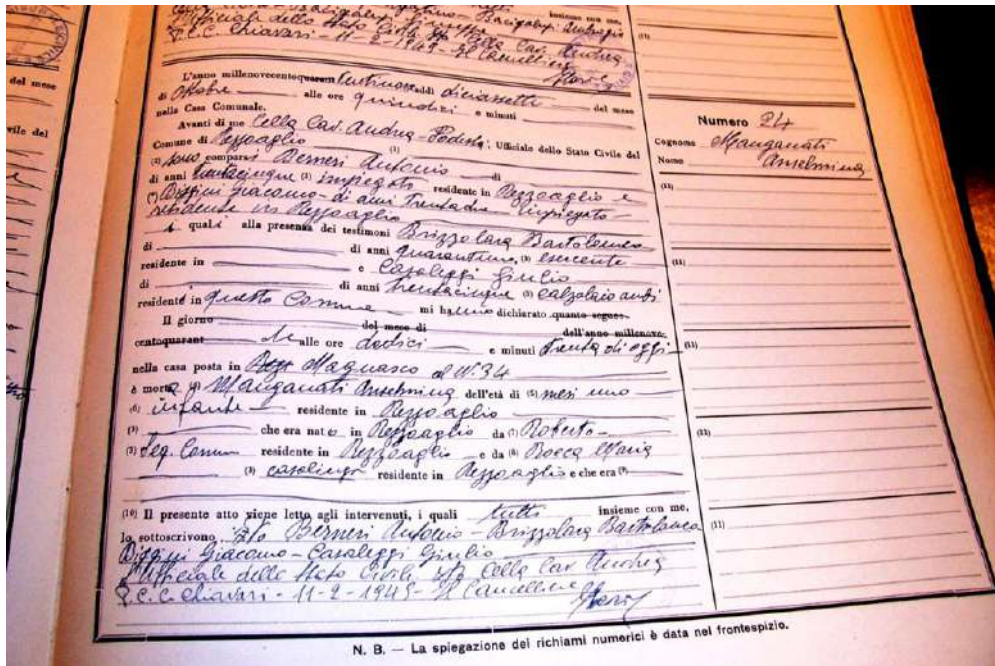 insieme con me,
l'Ufficiale dello Stato Civile Cella Cav. Andrea
P.C.C. Chiavari - 11-2-1949 - Il Cancelliere
del mese
vile del
L'anno millenovecentoquarant addì diciassette del mese
di Ottobre alle ore quindici e minuti
nella Casa Comunale.
Avanti di me Cella Cav. Andrea - Podestà; Ufficiale dello Stato Civile del
Comune di Rezzoaglio (1)
(2) sono comparsi Berneri Antonio di
di anni trentacinque (3) impiegato residente in Rezzoaglio e
(4) Biggini Giacomo - di anni trentadue impiegato
residente in Rezzoaglio
i quali alla presenza dei testimoni Brizzolara Bartolomeo
di di anni quarantuno (3) esercente
residente in e Casaleggi Giulio
di di anni trentacinque (3) calzolaio ambi
residenti in questo Comune mi hanno dichiarato quanto segue:
Il giorno del mese di dell'anno millenove-
centoquarant alle ore dodici e minuti trenta di oggi
nella casa posta in Magnasco al N. 34
è morta (4) Manganati Anselmina dell'età di (5) mesi uno
(6) infante residente in Rezzoaglio
(7) che era nata in Rezzoaglio da (7) Roberto
(3) Seg. Comun residente in Rezzoaglio e da (8) Bocca Maria
(3) casalinga residente in Rezzoaglio e che era (9)
(10) Il presente atto viene letto agli intervenuti, i quali tutti insieme con me,
lo sottoscrivono Berneri Antonio - Brizzolara Bartolomeo
Biggini Giacomo - Casaleggi Giulio
L'Ufficiale dello Stato Civile Cella Cav Andrea
P.C.C. Chiavari - 11-2-1949 - Il Cancelliere
(11)
Numero 24
Cognome Manganati
Nome Anselmina
(11)
(11)
(11)
(11)
(11)
N. B. — La spiegazione dei richiami numerici è data nel frontespizio.